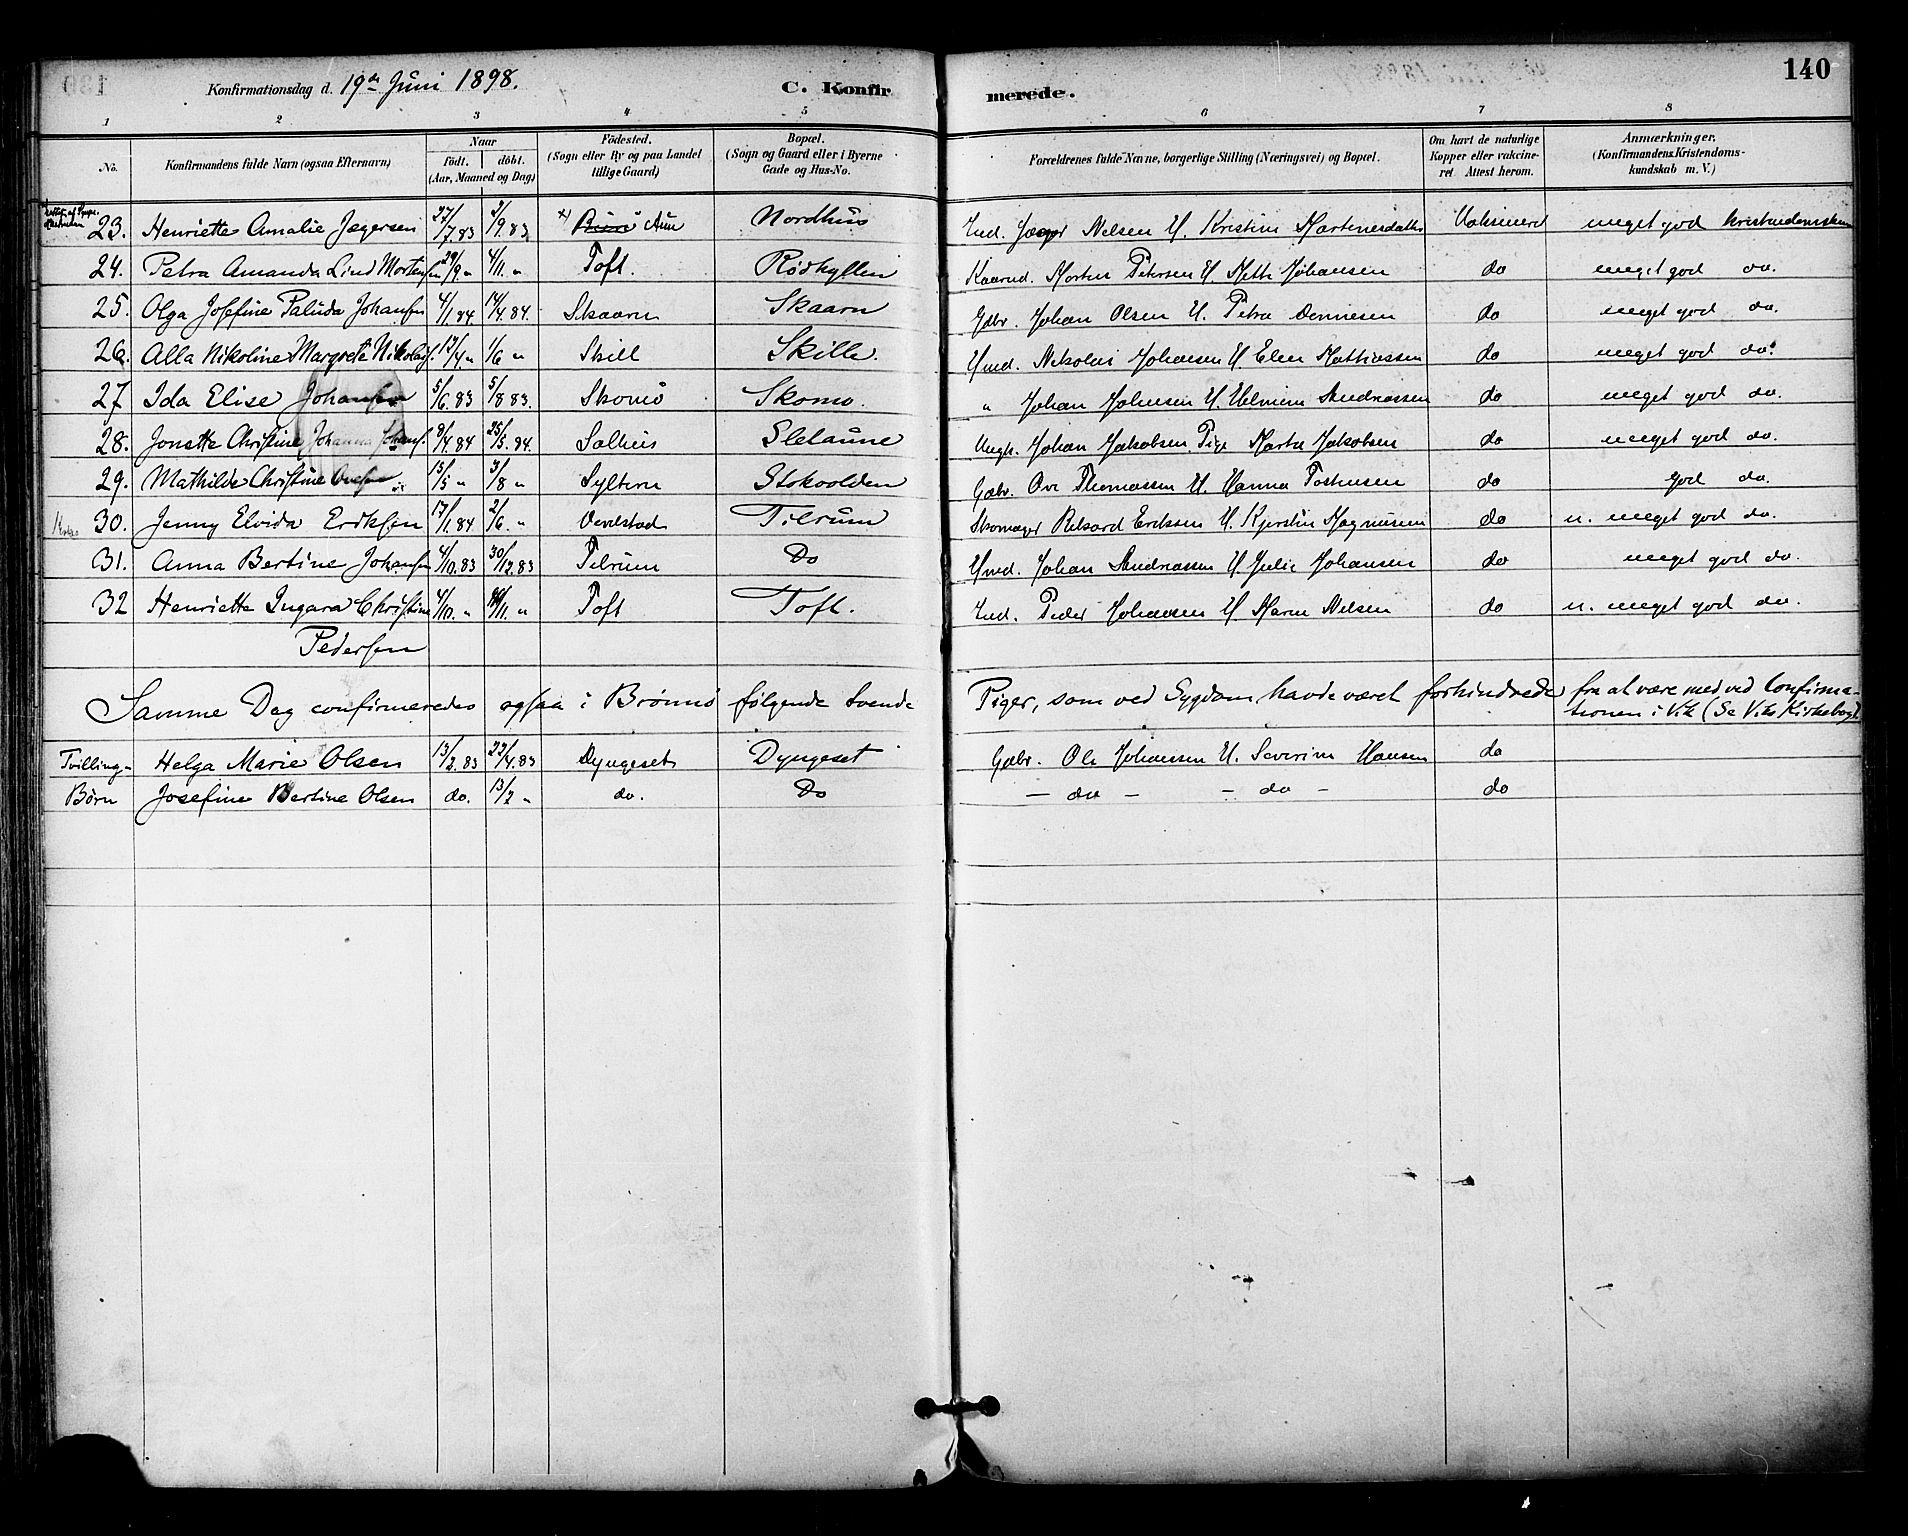 140
Konfirmationsdag d. 19de Juni 1898. C. Konfir merede.
1 2 3 4 5 6 7 8
No. Konfirmandens fulde Navn (ogsaa Efternavn) Naar födt. döbt. (Aar, Maaned og Dag) Födested. (Sogn eller By og paa Landet lillige Gaard) Bopæl. (Sogn og Gaard eller i Byerne Gade og Hus-No. Forældrenes fulde Navne, borgerlige Stilling (Næringsvei) og Bopæl. Om havt de naturlige Kopper eller vakcineret Attest herom. Anmærkninger, (Konfirmandens Kristendomskundskab m. V.)
23. Henriette Amalie Jægersen 27/7.83 2/9.83 Nordhus Ind. Jæger Nelsen H. Kristine Martinusdatter Vaksineret meget god Kristendomskun
24. Petra Amanda Lind Mortensen 29/9 " 4/11. " Toft. Rödhyllen Kaarud. Morten Petersen H. Mette Johansen do meget god do.
25. Olga Josefine Paluda Johansen 4/1.84. 14/4.84. Skaarn Skaarn Gdbr. Johan Olsen H. Petra Dennesen do meget god do.
26. Alla Nikoline Margrete Nikolais. 17/4 " 1/6 " Skill Skille. Hmd. Nikolai Johansen H. Elen Mattiassen do meget god do.
27 Ida Elise Johansen 5/6.83 5/8 83. Skomö Skomo. " Johan Johnsen H. Helmine Andreassen do meget god do.
28. Jonette Christine Johanna Johans. 8/4.84 25/5.84. Salhus Sletaune Ungk. Johan Jakobsen Pige Marta Jakobsen do meget god do.
29. Mathilde Christine Ovesen 13/5 " 3/8 " Syltern Stokoolden Gdbr. Ove Thomassen H. Hanna Tostensen do god do.
30. Jenny Elvida Eriksen 17/1.84 2/6. " Vevelstad Tilrum Skomager Rikard Eriksen H. Kjerstin Magnusen do n. meget god do.
31. Anna Bertine Johansen 4/10.83 30/12.83 Tilrum Do Hmd. Johan Andreassen H. Julie Johansen do meget god do.
32 Henriette Ingara Christine 4/10. " /11. " Toft Toft. Ind. Peder Johansen H. Maren Nelsen do n. meget god do.
Pedersen
Samme Dag confirmeredes ogsaa i Brönnö følgende tvende Piger, som ved Sygdom havde været forhindrede fra at være med ved Confirma-
tionen i Vik (Se Viks Kirkebog).
Tvilling- Helga Marie Olsen 13/2.83 22/4.83 Dyngeset Dyngeset Gdbr. Ole Johansen H. Severine Hansen do
Børn Josefine Bertine Olsen do. 13/2 " do. Do — do — — do — do